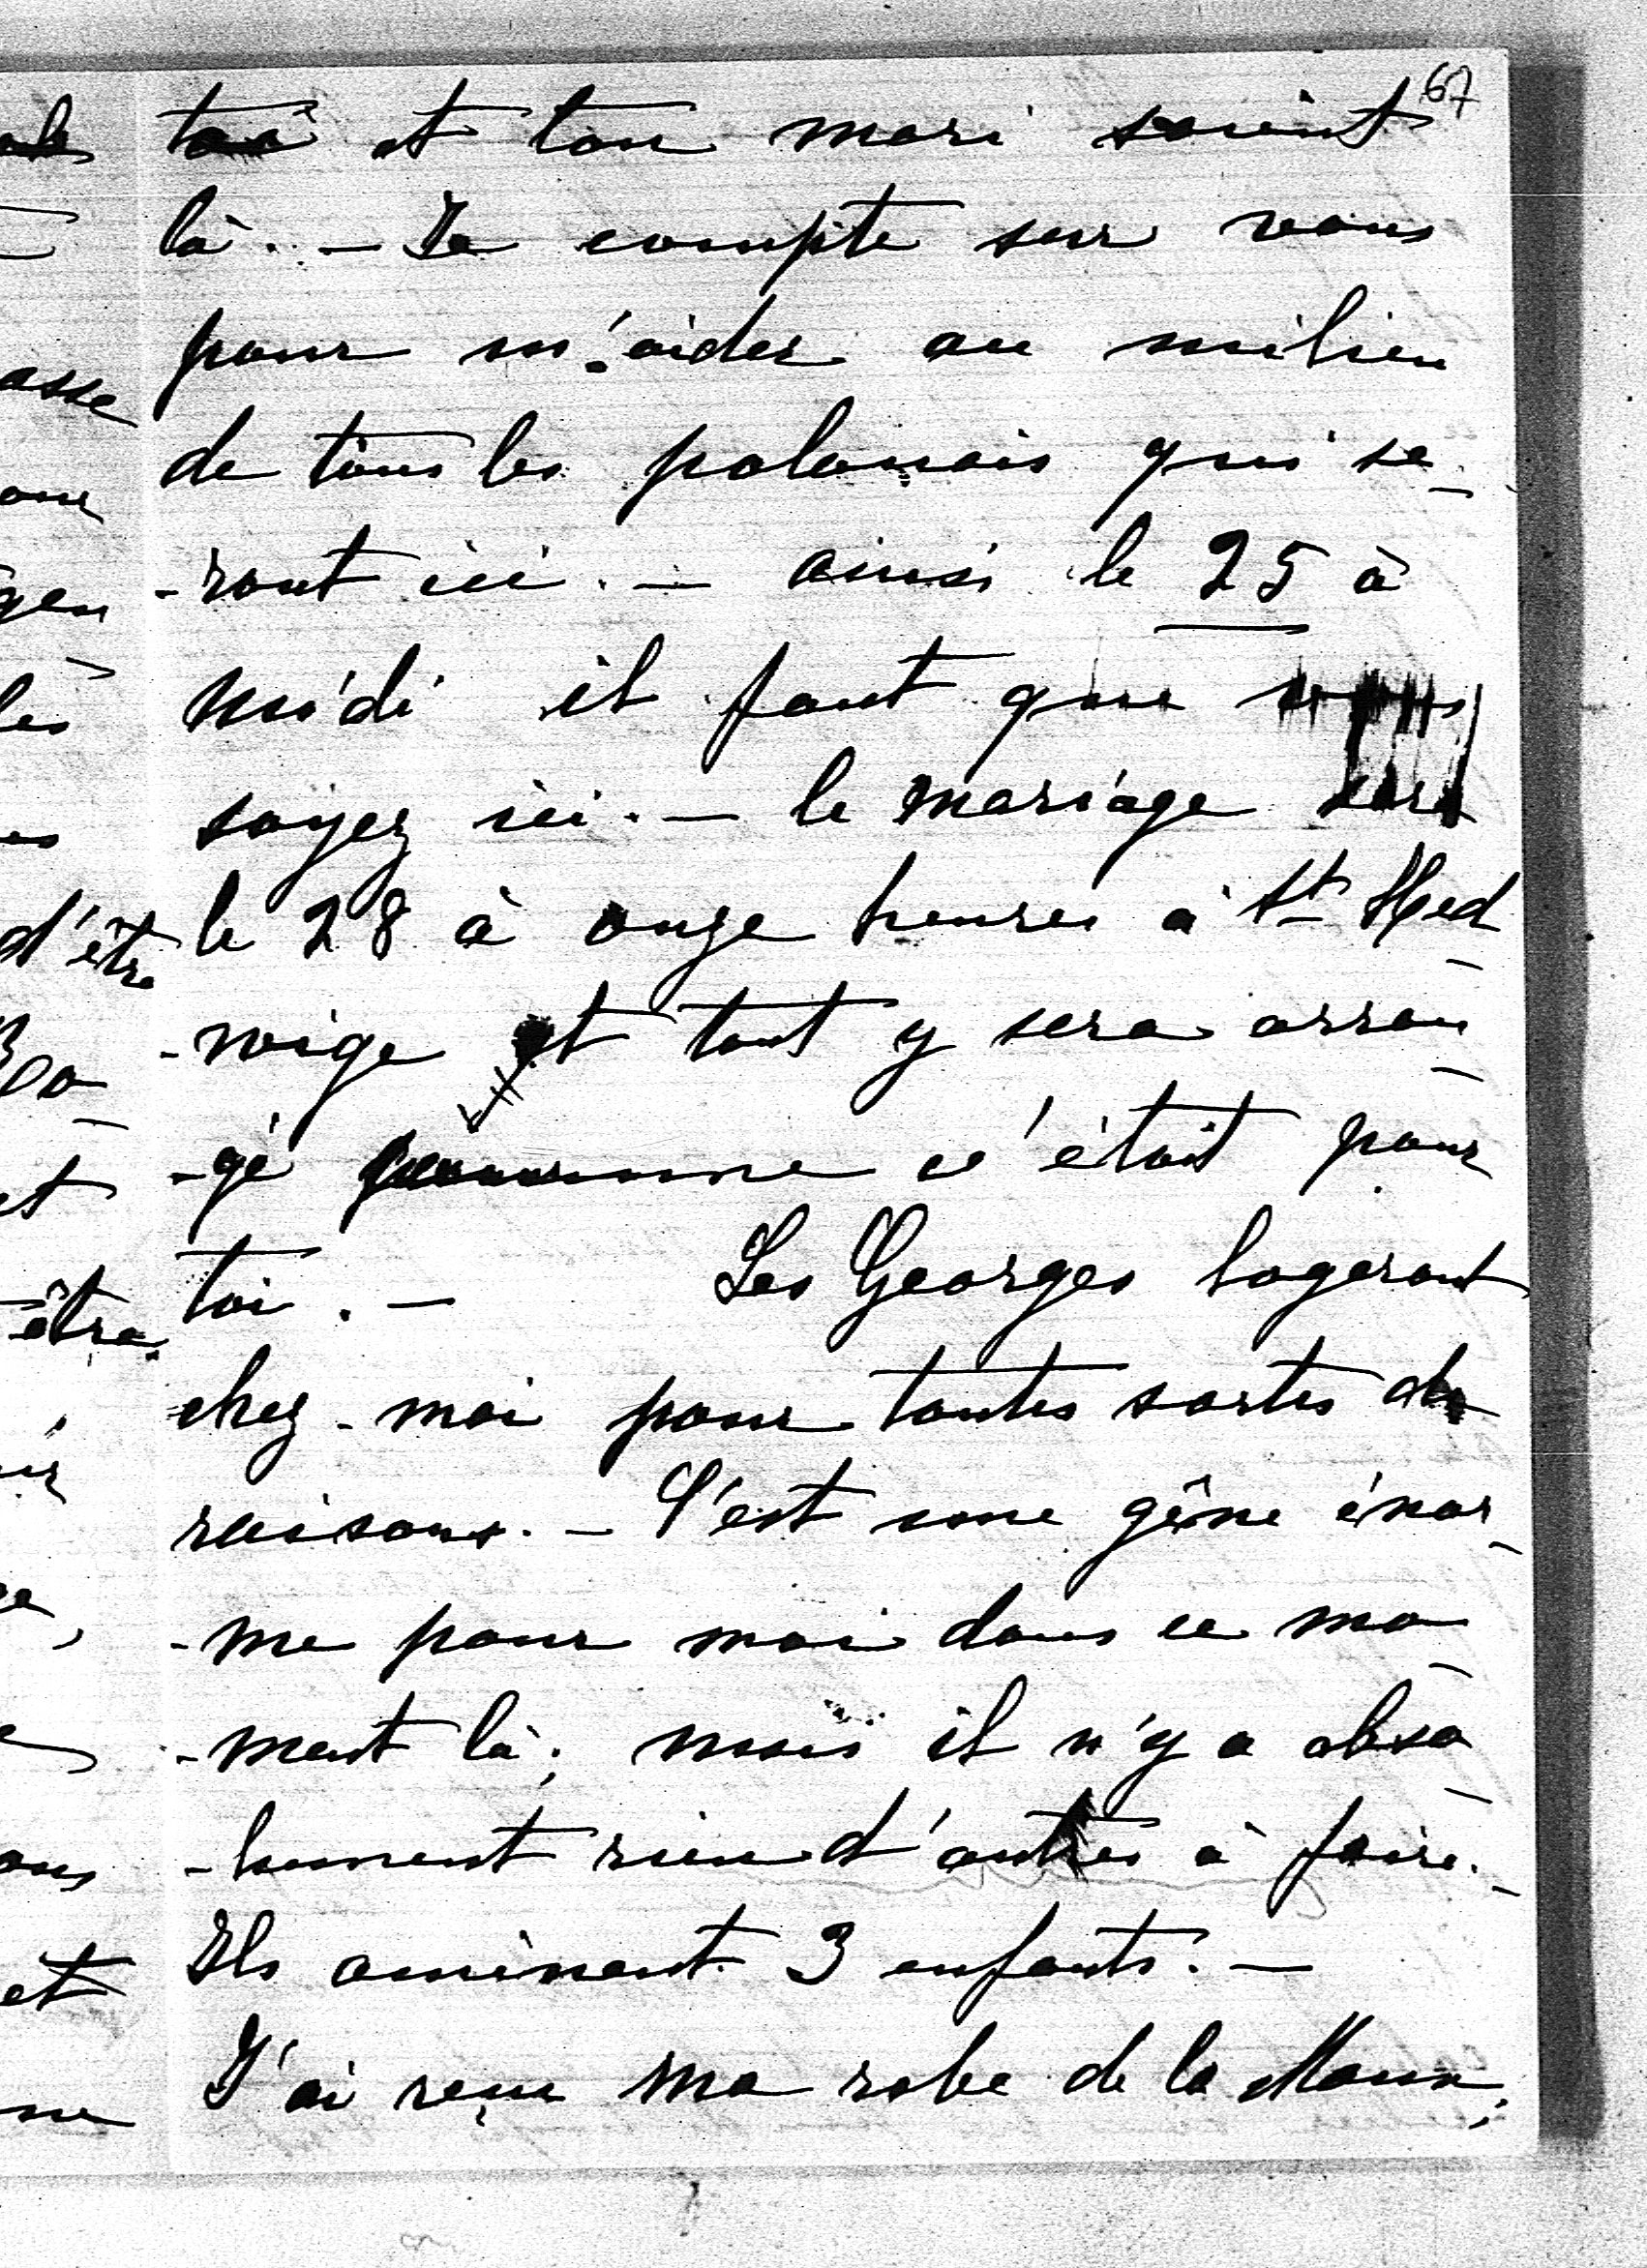 67
toi et ton mari soient
là. — Je compte sur vous
pour m'aider au milieu
de tous les polonais qui se-
-ront ici. — ainsi le 25 à
midi il faut que vous
soyez ici. — le mariage sera
le 28 à onze heures à St Hed-
-wige et tout y sera arran-
-gé comme c'était pour
toi. — Les Georges logeront
chez-moi pour toutes sortes de
raisons. — C'est une gêne énor-
-me pour moi dans ce mo-
-ment là; mais il n'y a abso-
-lument rien d'autres à faire. -
Ils amènent 3 enfants. —
J'ai reçu ma robe de la
asse
d'être
et
être
et